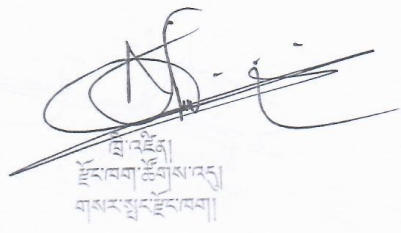 ཁྲི་འཛིན།
རྫོང་ཁག་ཚོགས་འདུ།
གསར་སྤང་རྫོང་ཁག།